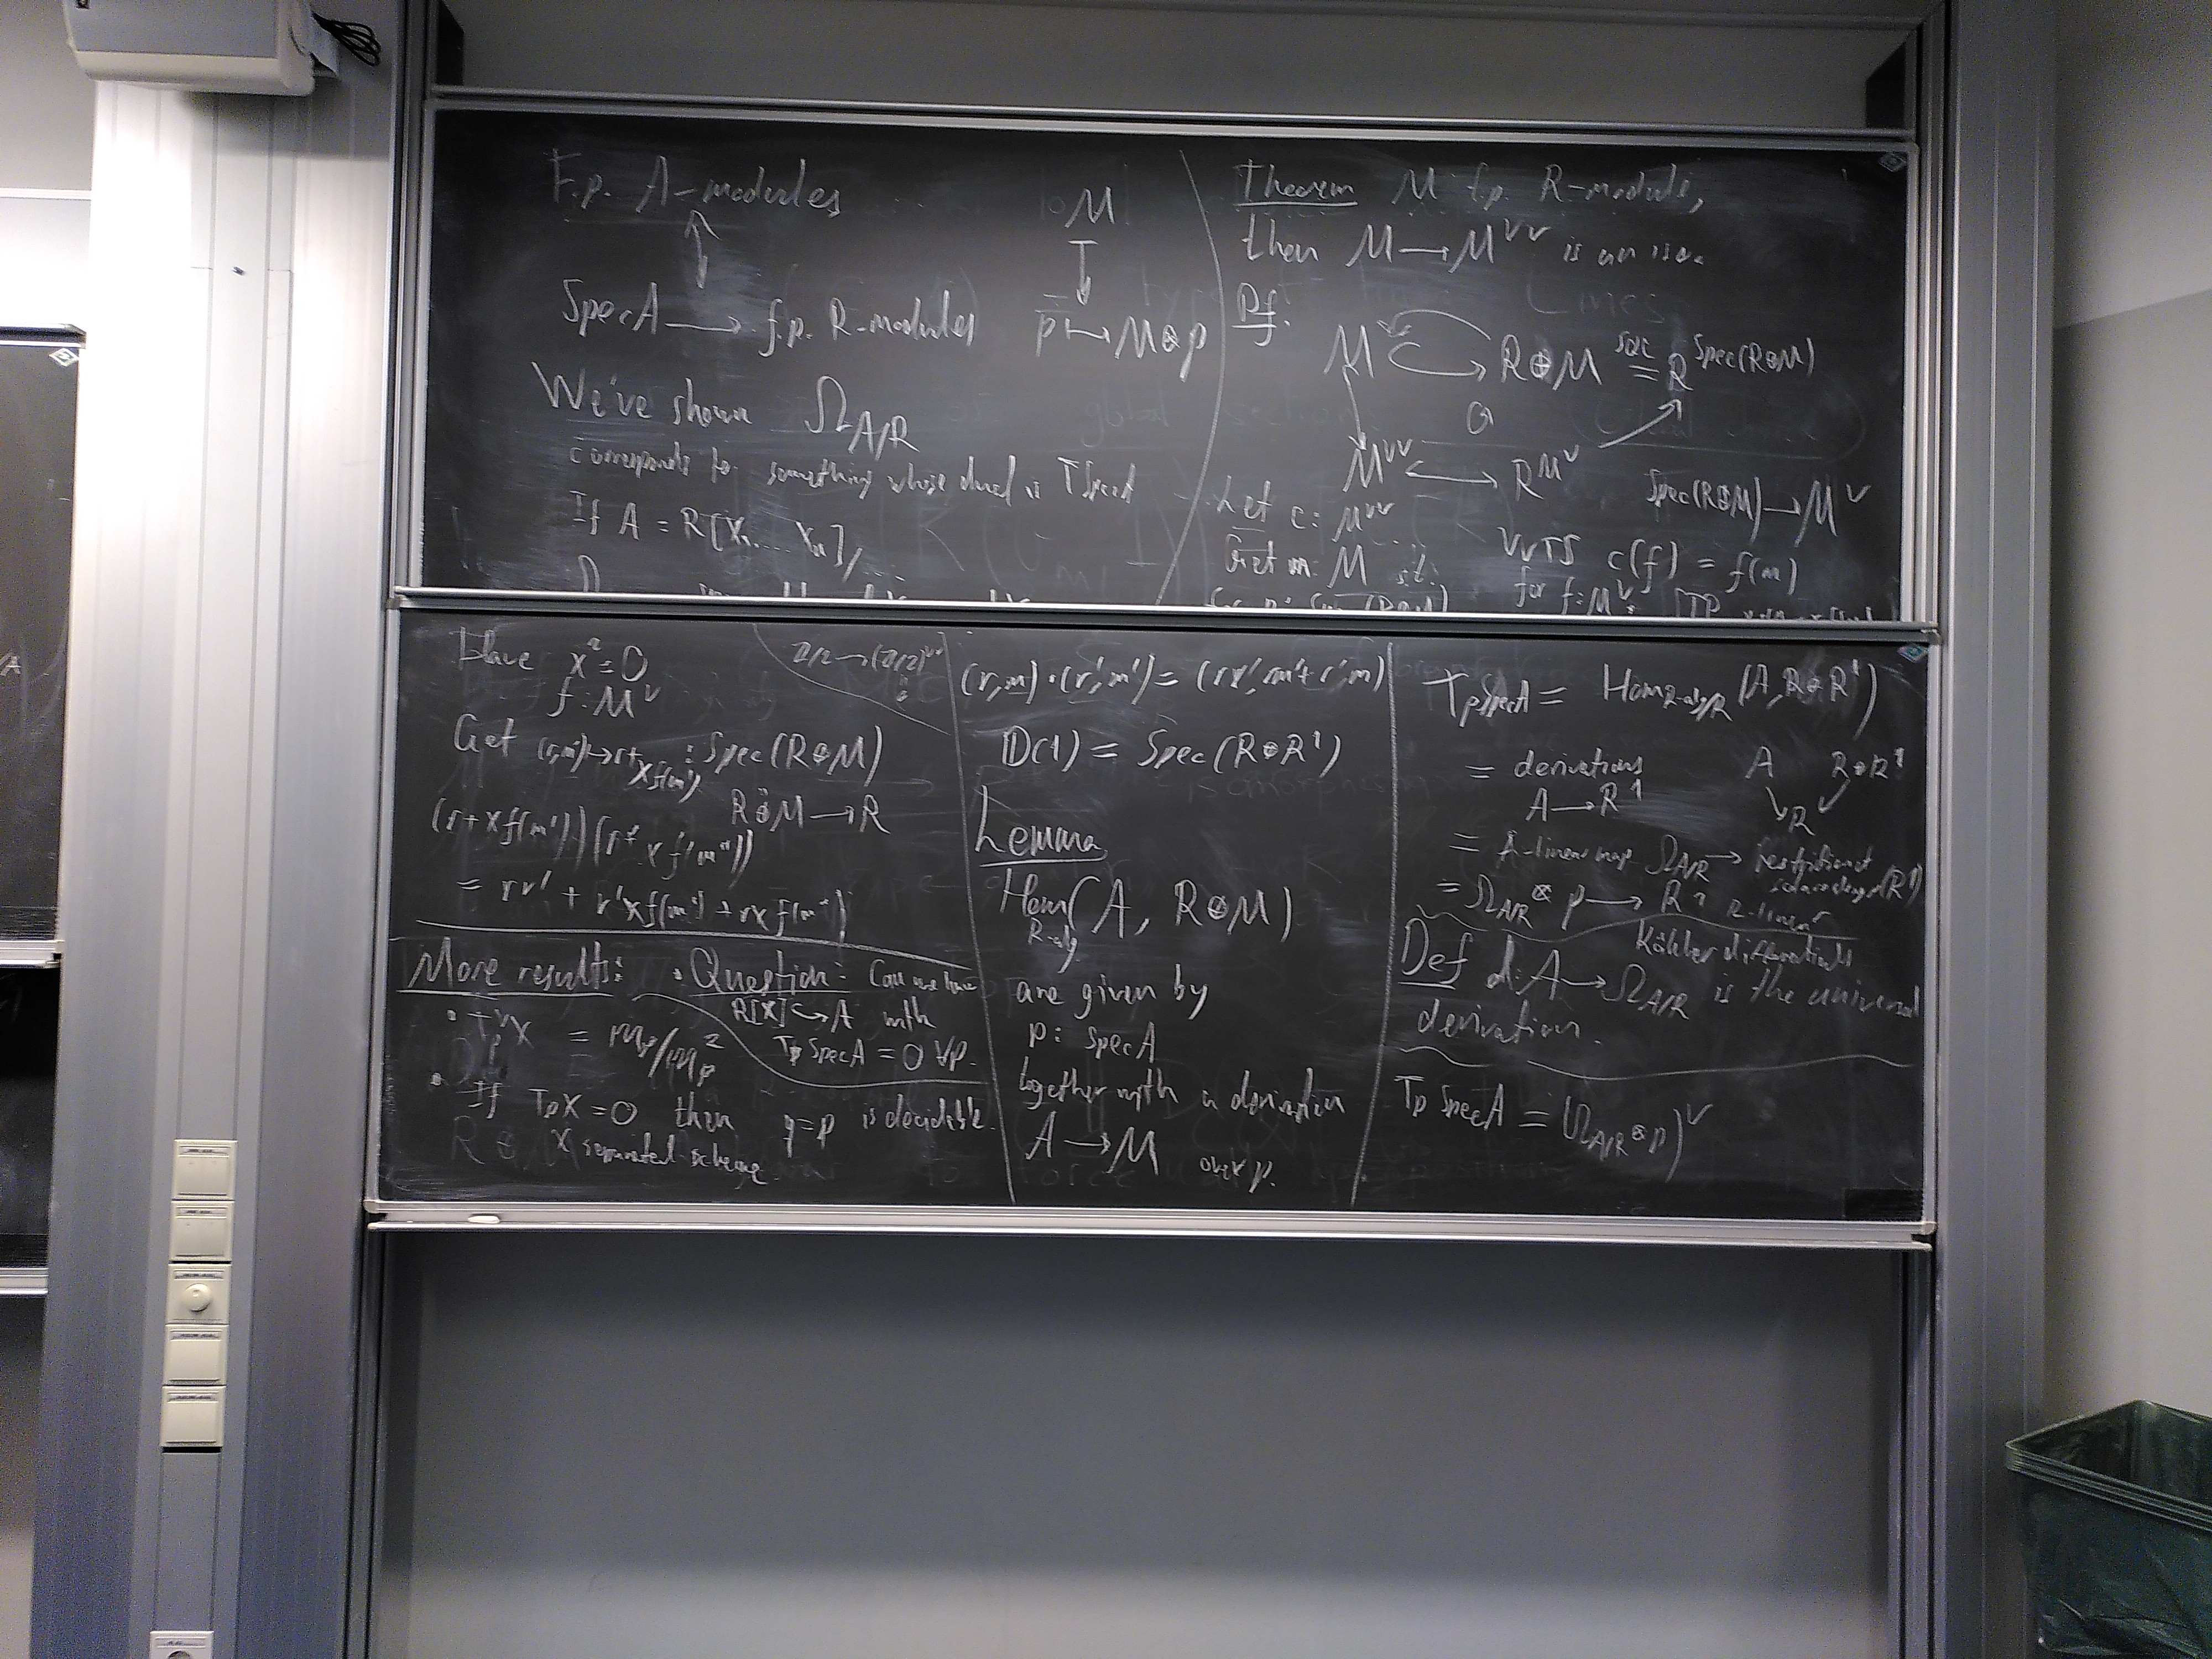 F.p. A-modules
M
SpecA → f.p. R-modules
p ↦ M⊗p
We've shown Ω_{A/R}
corresponds to something whose dual is TSpecA
If A = R[X₁...Xₙ]/
Theorem M f.p. R-module,
then M → M^{∨∨} is an iso.
Pf.
M ↪ R⊕M =^{SQC} R^{Spec(R⊕M)}
M^{∨∨} R^{M^∨}
Spec(R⊕M) → M^∨
Let c: M^{∨∨}
Get m: M s.t.
WTS c(f) = f(m)
for f: M^∨. STP
Have x² = 0
f: M^∨
Z/2 → (Z/2)^{∨∨}
Get (r,m') ↦ r + x f(m') : Spec(R⊕M)
R⊕M → R
(r + x f(m'))(r' + x f(m''))
= rr' + r'x f(m') + rx f(m'')
More results:
T_p^∨X = m_p/m_p²
If T_pX = 0 then q=p is decidable.
X separated scheme
Question: Can we have
R[X] ↪ A with
T_p SpecA = 0 ∀p.
(r,m)·(r',m') = (rr', rm' + r'm)
D(1) = Spec(R⊕R¹)
Lemma
Hom_{R-alg}(A, R⊕M)
are given by
p: SpecA
together with a derivation
A → M over p.
T_pSpecA = Hom_{R-alg/R}(A, R⊕R¹)
= derivations
A → R¹
A R⊕R¹
R
= A-linear map Ω_{A/R} → restriction of scalars (R¹)
= Ω_{A/R} ⊗ p → R¹ R-linear
Kähler differentials
Def d: A → Ω_{A/R} is the universal
derivation.
T_p SpecA = (Ω_{A/R} ⊗ p)^∨